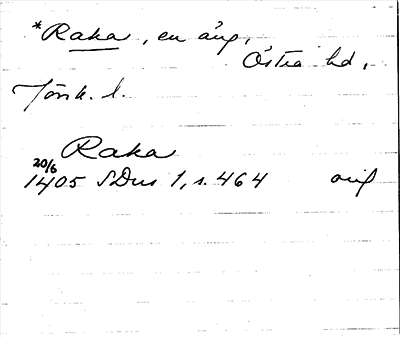 *Raka, en äng,
Östra hd,
Jönk. l.
Raka
20/6
1405 SDns 1, s. 464 orig